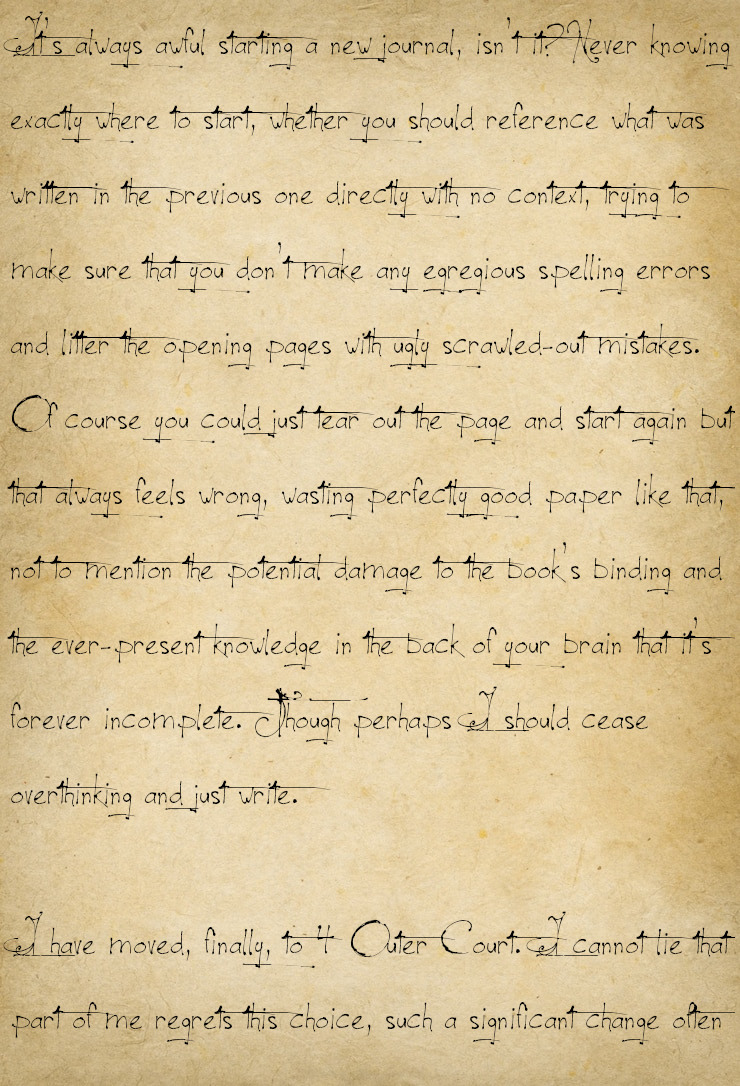 It's always awful starting a new journal, isn't it? Never knowing
exactly where to start, whether you should reference what was
written in the previous one directly with no context, trying to
make sure that you don't make any egregious spelling errors
and litter the opening pages with ugly scrawled-out mistakes.
Of course you could just tear out the page and start again but
that always feels wrong, wasting perfectly good paper like that,
not to mention the potential damage to the book's binding and
the ever-present knowledge in the back of your brain that it's
forever incomplete. Though perhaps I should cease
overthinking and just write.
I have moved, finally, to 4 Outer Court. I cannot lie that
part of me regrets this choice, such a significant change often